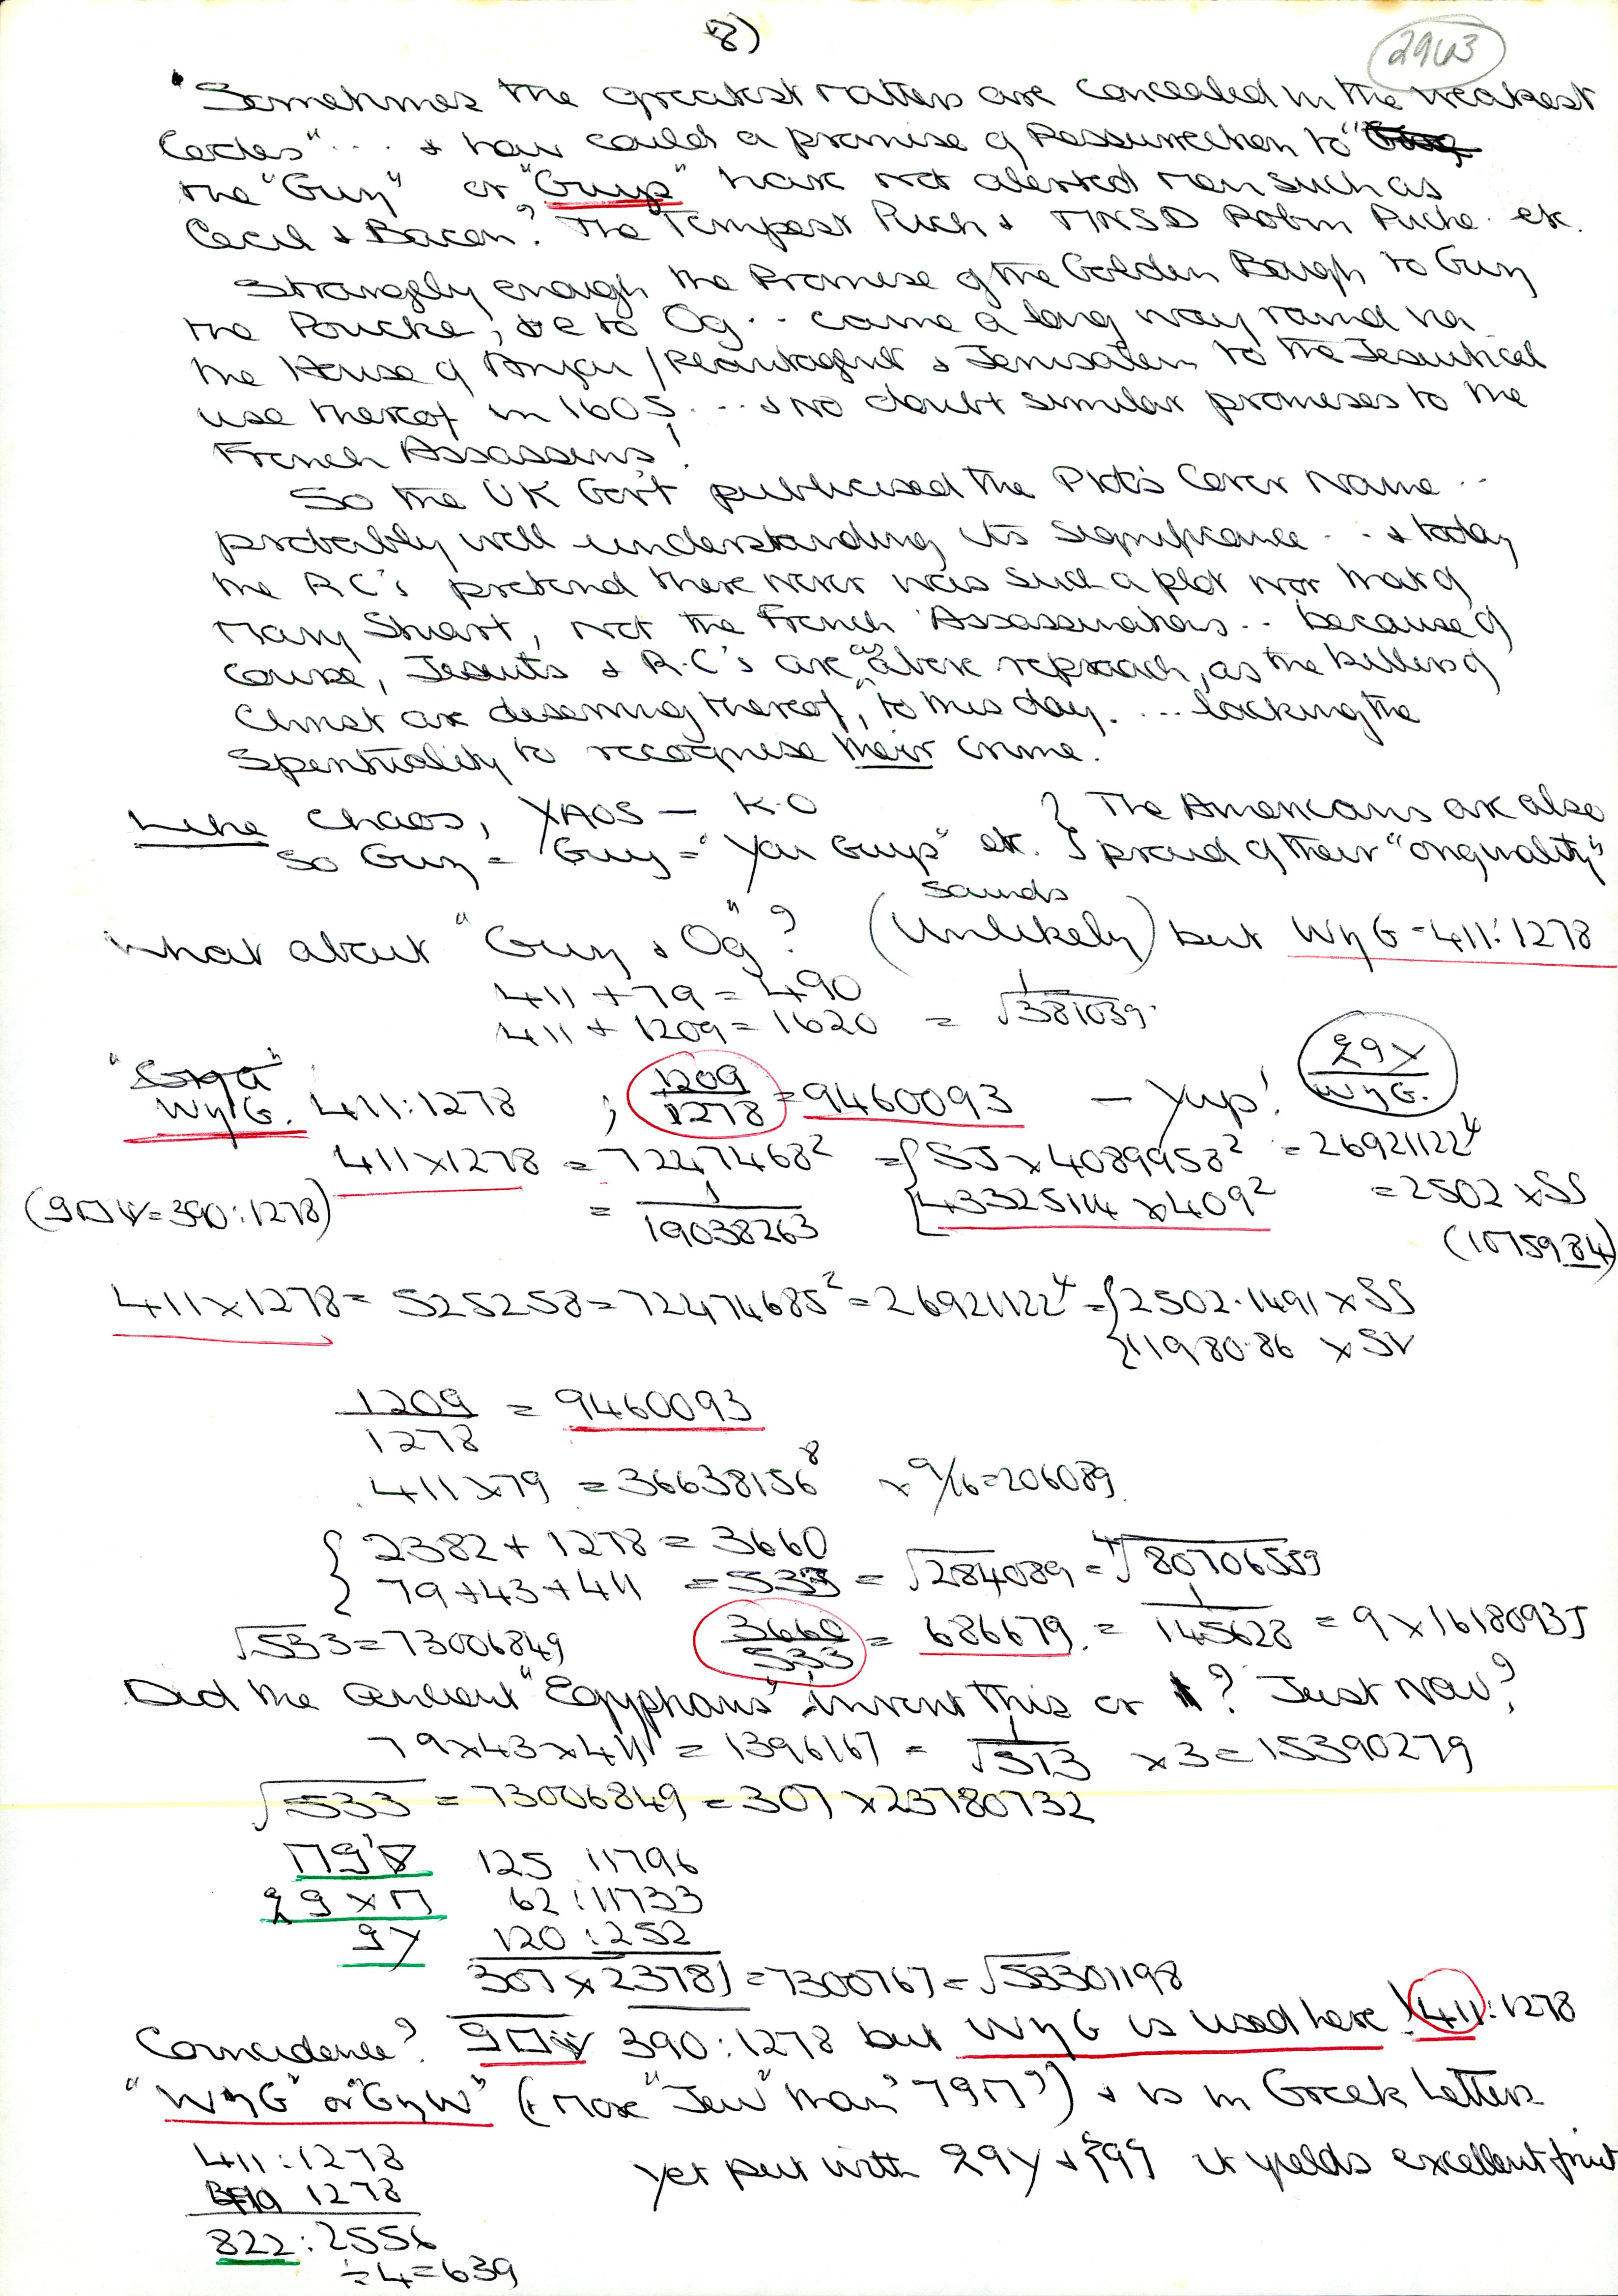 8)
2963
"Sometimes the greatest matters are concealed in the weakest
Codes" ... & how could a promise of Ressurrection to
the "Guy" or "Guys" have not alerted men such as
Cecil & Bacon? The Tempest Puck & MNSD Robin Pucke. etc.
Strangely enough the Promise of the Golden Bough to Guy
the Poucke, ie to Og .. came a long way round via
the House of Anjou / Plantagent & Jerusalem to the Jesuitical
use thereof in 1605 ... & no doubt similar promises to the
French Assassins!
So the UK Gov't publicised the Plot's Cover Name ..
probably well understanding its significance .. & today
the RC's pretend there never was such a plot nor that of
Mary Stuart, not the French Assassinations .. because of
course, Jesuits & R.C's are as above reproach, as the killers of
Christ are deserving thereof, to this day. ... lacking the
Spirituality to recognise their crime.
Like Chaos, XAOS — K.O } The Americans are also
So Guy = Guy = "You Guys" etc. } proud of their "originality"
sounds
What about "Guy & Og"? (Unlikely) but WηG = 411:1278
411 + 79 = 490
411 + 1209 = 1620 = 1/√381039.
WηG. 411:1278 ; 1209/1278 = 9460093 — Yup!
WηG.
411 × 1278 = 7247468² = { 55 × 4089958² = 26921122⁴
(390:1278) = 1/19038263 { 43325114 × 409² = 2502 × SS
(1075984)
411 × 1278 = 525258 = 72474685² = 26921122⁴ = { 2502.1491 × SS
{ 11980.86 × SV
1209/1278 = 9460093
411 × 79 = 36638156⁸ × 9/16 = 206089
{ 2382 + 1278 = 3660
{ 79 + 43 + 411 = 533 = √284089 = ⁴√80706559
√533 = 73006849 3660/533 = 686679. = 1/145628 = 9 × 16180935
Did the Ancient "Egyptians" invent this or ? Just Now?
79 × 43 × 411 = 1396167 = 1/√513 × 3 = 15390279
√533 = 73006849 = 307 × 23780732
125 11796
62 : 11733
120 : 252
307 × 23781 = 7300767 = √53301198
Coincidence? 390:1278 but WηG is used here! 411:1278
"WηG" or "GηW" (More "Jew" than ) & is in Greek Letters
411:1278 yet put with it yields excellent fruit
1278
822 : 2556
÷ 4 = 639